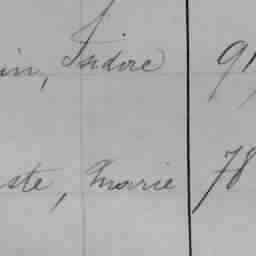 in, Isidore 91
ste, Marie 78